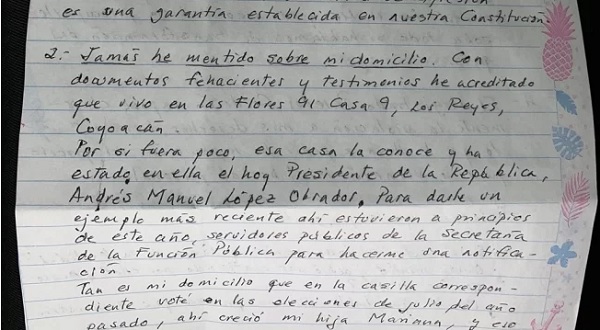 es una garantía establecida en nuestra Constitución.
2.- Jamás he mentido sobre mi domicilio. Con
documentos fehacientes y testimonios he acreditado
que vivo en las Flores 91 Casa 9, Los Reyes,
Coyoacán.
Por si fuera poco, esa casa la conoce y ha
estado en ella el hoy Presidente de la República,
Andrés Manuel López Obrador. Para darle un
ejemplo más reciente ahí estuvieron a principios
de este año, servidores públicos de la Secretaría
de la Función Pública para hacerme una notifica-
ción.
Tan es mi domicilio que en la casilla correspon-
diente voté en las elecciones de julio del año
pasado, ahí creció mi hija Mariana, y eso